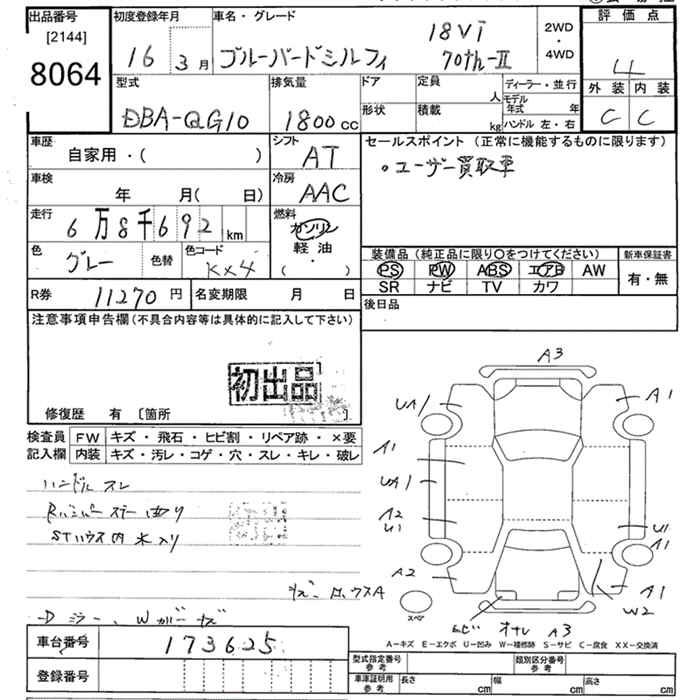 出品番号 初度登録年月 車名・グレード 評価点
[2144] 18Vi 2WD
8064 16 3月 ブルーバードシルフィ 70th-II ・4WD 4
型式 排気量 ドア 定員 人 ディーラー・並行 外装 内装
DBA-QG10 1800cc 形状 積載 kg モデル年式 年 C C
ハンドル 左・右
車歴 シフト セールスポイント(正常に機能するものに限ります)
自家用・( ) AT 。ユーザー買取車
車検 冷房
年 月( 日) AAC
走行 燃料
6万8千692km ガソリン
色 色替 色コード 軽油 装備品(純正品に限り○をつけてください) 新車保証書
グレー KX4 ( ・ ) PS PW ABS エアB AW 有・無
SR ナビ TV カワ
R券 11270円 名変期限 月 日 後日品
注意事項申告欄(不具合内容等は具体的に記入して下さい)
初出品
修復歴 有 〔箇所 〕
検査員 FW キズ・飛石・ヒビ割・リペア跡・×要
記入欄 内装 キズ・汚レ・コゲ・穴・スレ・キレ・破レ
ハンドル スレ
STハウス内 水入り
A3
UA1 A1
A1
UA1
A2
U1 U1
A1
A2 A1
W2
スペア
A3
A-キズ E-エクボ U-凹み W-補修跡 S-サビ C-腐食 XX-交換済
車台番号 173625
登録番号
型式指定番号 参考 類別区分番号 参考
車庫証明用 参考 長さ cm 幅 cm 高さ cm